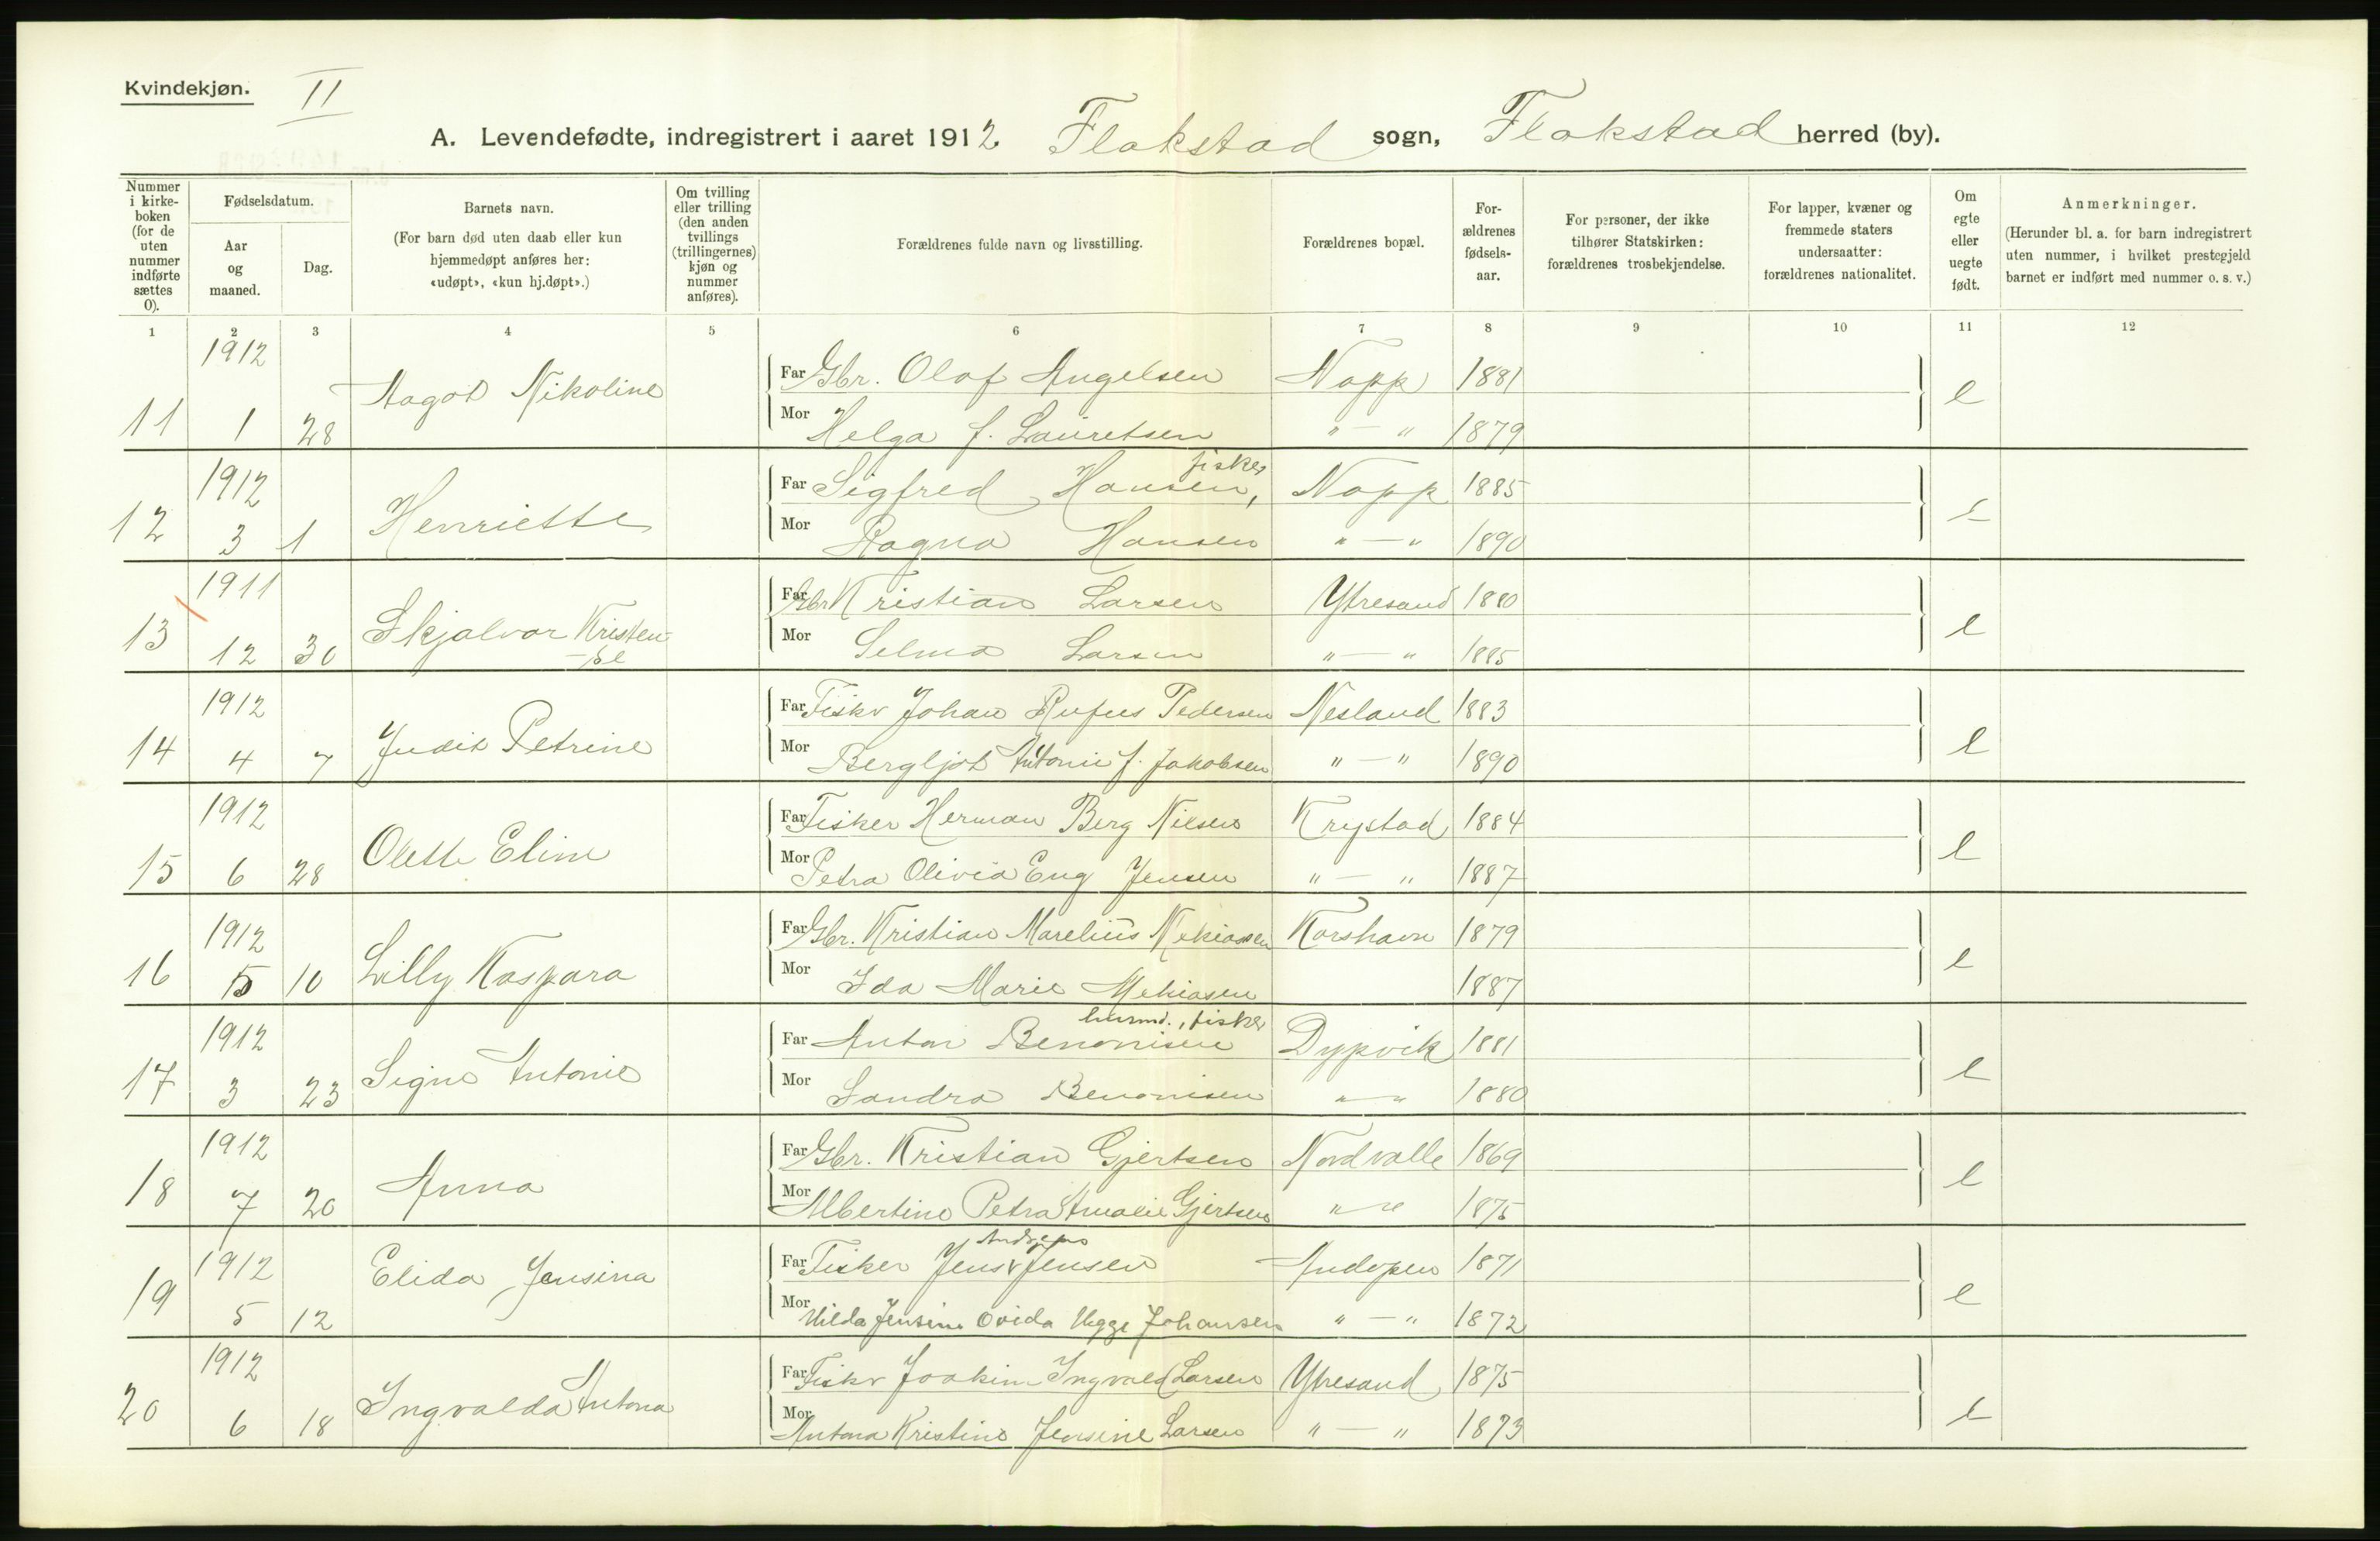 Kvindekjøn.
II
A. Levendefødte, indregistrert i aaret 1912 Flakstad sogn, Flakstad herred (by).
Nummer i kirke-boken (for de uten nummer indførte sættes 0).
Fødselsdatum.
Aar og maaned.
Dag.
Barnets navn.
(For barn død uten daab eller kun hjemmedøpt anføres her: «udøpt», «kun hj.døpt».)
Om tvilling eller trilling (den anden tvillings (trillingernes) kjøn og nummer anføres).
Forældrenes fulde navn og livsstilling.
Forældrenes bopæl.
For-ældrenes fødsels-aar.
For personer, der ikke tilhører Statskirken: forældrenes trosbekjendelse.
For lapper, kvæner og fremmede staters undersaatter: forældrenes nationalitet.
Om egte eller uegte født.
Anmerkninger.
(Herunder bl. a. for barn indregistrert uten nummer, i hvilket prestegjeld barnet er indført med nummer o. s. v.)
1 2 3 4 5 6 7 8 9 10 11 12
1912 Aagot Nikoline Far Gbr. Olaf Angelsen Napp 1881 e
11 1 28 Mor Helga f. Lauretsen " — " 1879
1912 Henriette Far Sigfred Hansen, fisker Napp 1885 e
12 3 1 Mor Ragna Hansen " — " 1890
1911 Skjalvor Kristen- Far Gbr Kristian Larsen Ytresand 1880 e
13 12 30 Mor Selma Larsen " — " 1885
1912 Judit Petrine Far Fisker Johan Rufus Pedersen Nesland 1883 e
14 4 7 Mor Bergljot Antonie f. Jakobsen " — " 1890
1912 Olette Eline Far Fisker Herman Berg Nilsen Krystad 1884 e
15 6 28 Mor Petra Olivia Eng Jensen " — " 1887
1912 Lilly Kaspara Far Gbr. Kristian Marelius Mekiasen Korshavn 1879 e
16 5 10 Mor Ida Marie Mekiasen 1887
1912 Signe Antonie Far Anton Benonisen husmd., fisker Dypvik 1881 e
17 3 23 Mor Sandra Benonisen " — " 1880
1912 Anna Far Gbr. Kristian Gjertsen Nordvalle 1869 e
18 7 20 Mor Albertine Petra Amalie Gjertsen " — " 1875
1912 Elida Jensina Far Fisker Jens Andreas Jensen Andopen 1871 e
19 5 12 Mor Hilda Jensine Ovida Vegge Johansen " — " 1872
1912 Ingvalda Antona Far Fisker Joakim Ingvald Larsen Ytresand 1875 e
20 6 18 Mor Antona Kristine Jensine Larsen " — " 1873